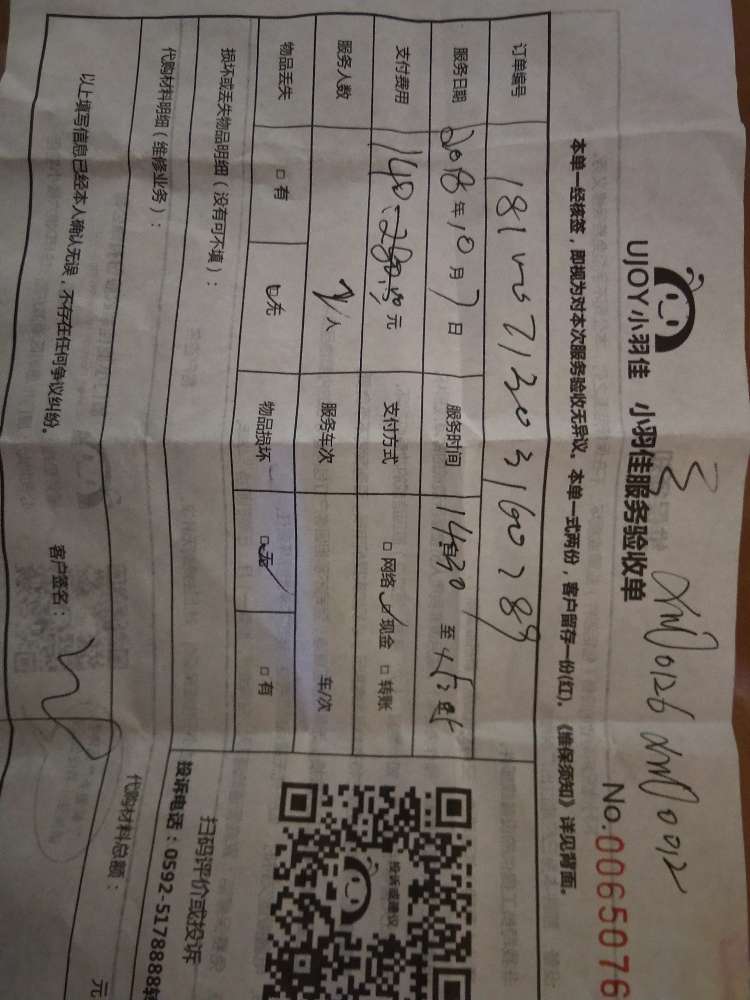 UJOY小羽佳 小羽佳服务验收单
No.0065076
xm00126 xm00012
本单一经核签，即视为对本次服务验收无异议。本单一式两份，客户留存一份(红)。《维保须知》详见背面。
订单编号
服务日期 2018年10月7日 服务时间 14:30 至
支付费用 140 元 支付方式 □ 网络 ☑ 现金 □ 转账
服务人数 2人 服务车次 车/次
物品丢失 □ 有 ☑ 无 物品损坏 ☑ 无 □ 有
损坏或丢失物品明细（没有可不填）：
代购材料明细（维修业务）：
代购材料总额： 元
以上填写信息已经本人确认无误，不存在任何争议纠纷。 客户签名：
投诉或建议
扫码评价或投诉
投诉电话：0592-5178888转